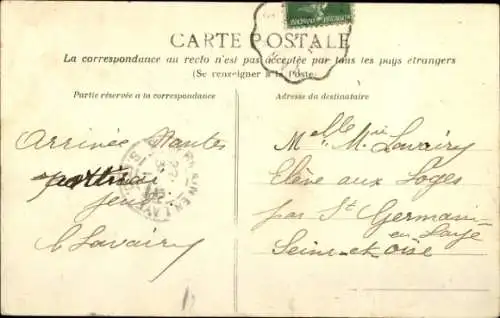 CARTE POSTALE
La correspondance au recto n'est pas acceptée par tous les pays étrangers
(Se renseigner à la Poste)
Partie réservée a la correspondance
Adresse du destinataire
Arrivée Nantes
jeudi
Lavairy
Melle Mie Lavairy
Elève aux Loges
par St Germain
en Laye
Seine-et-Oise